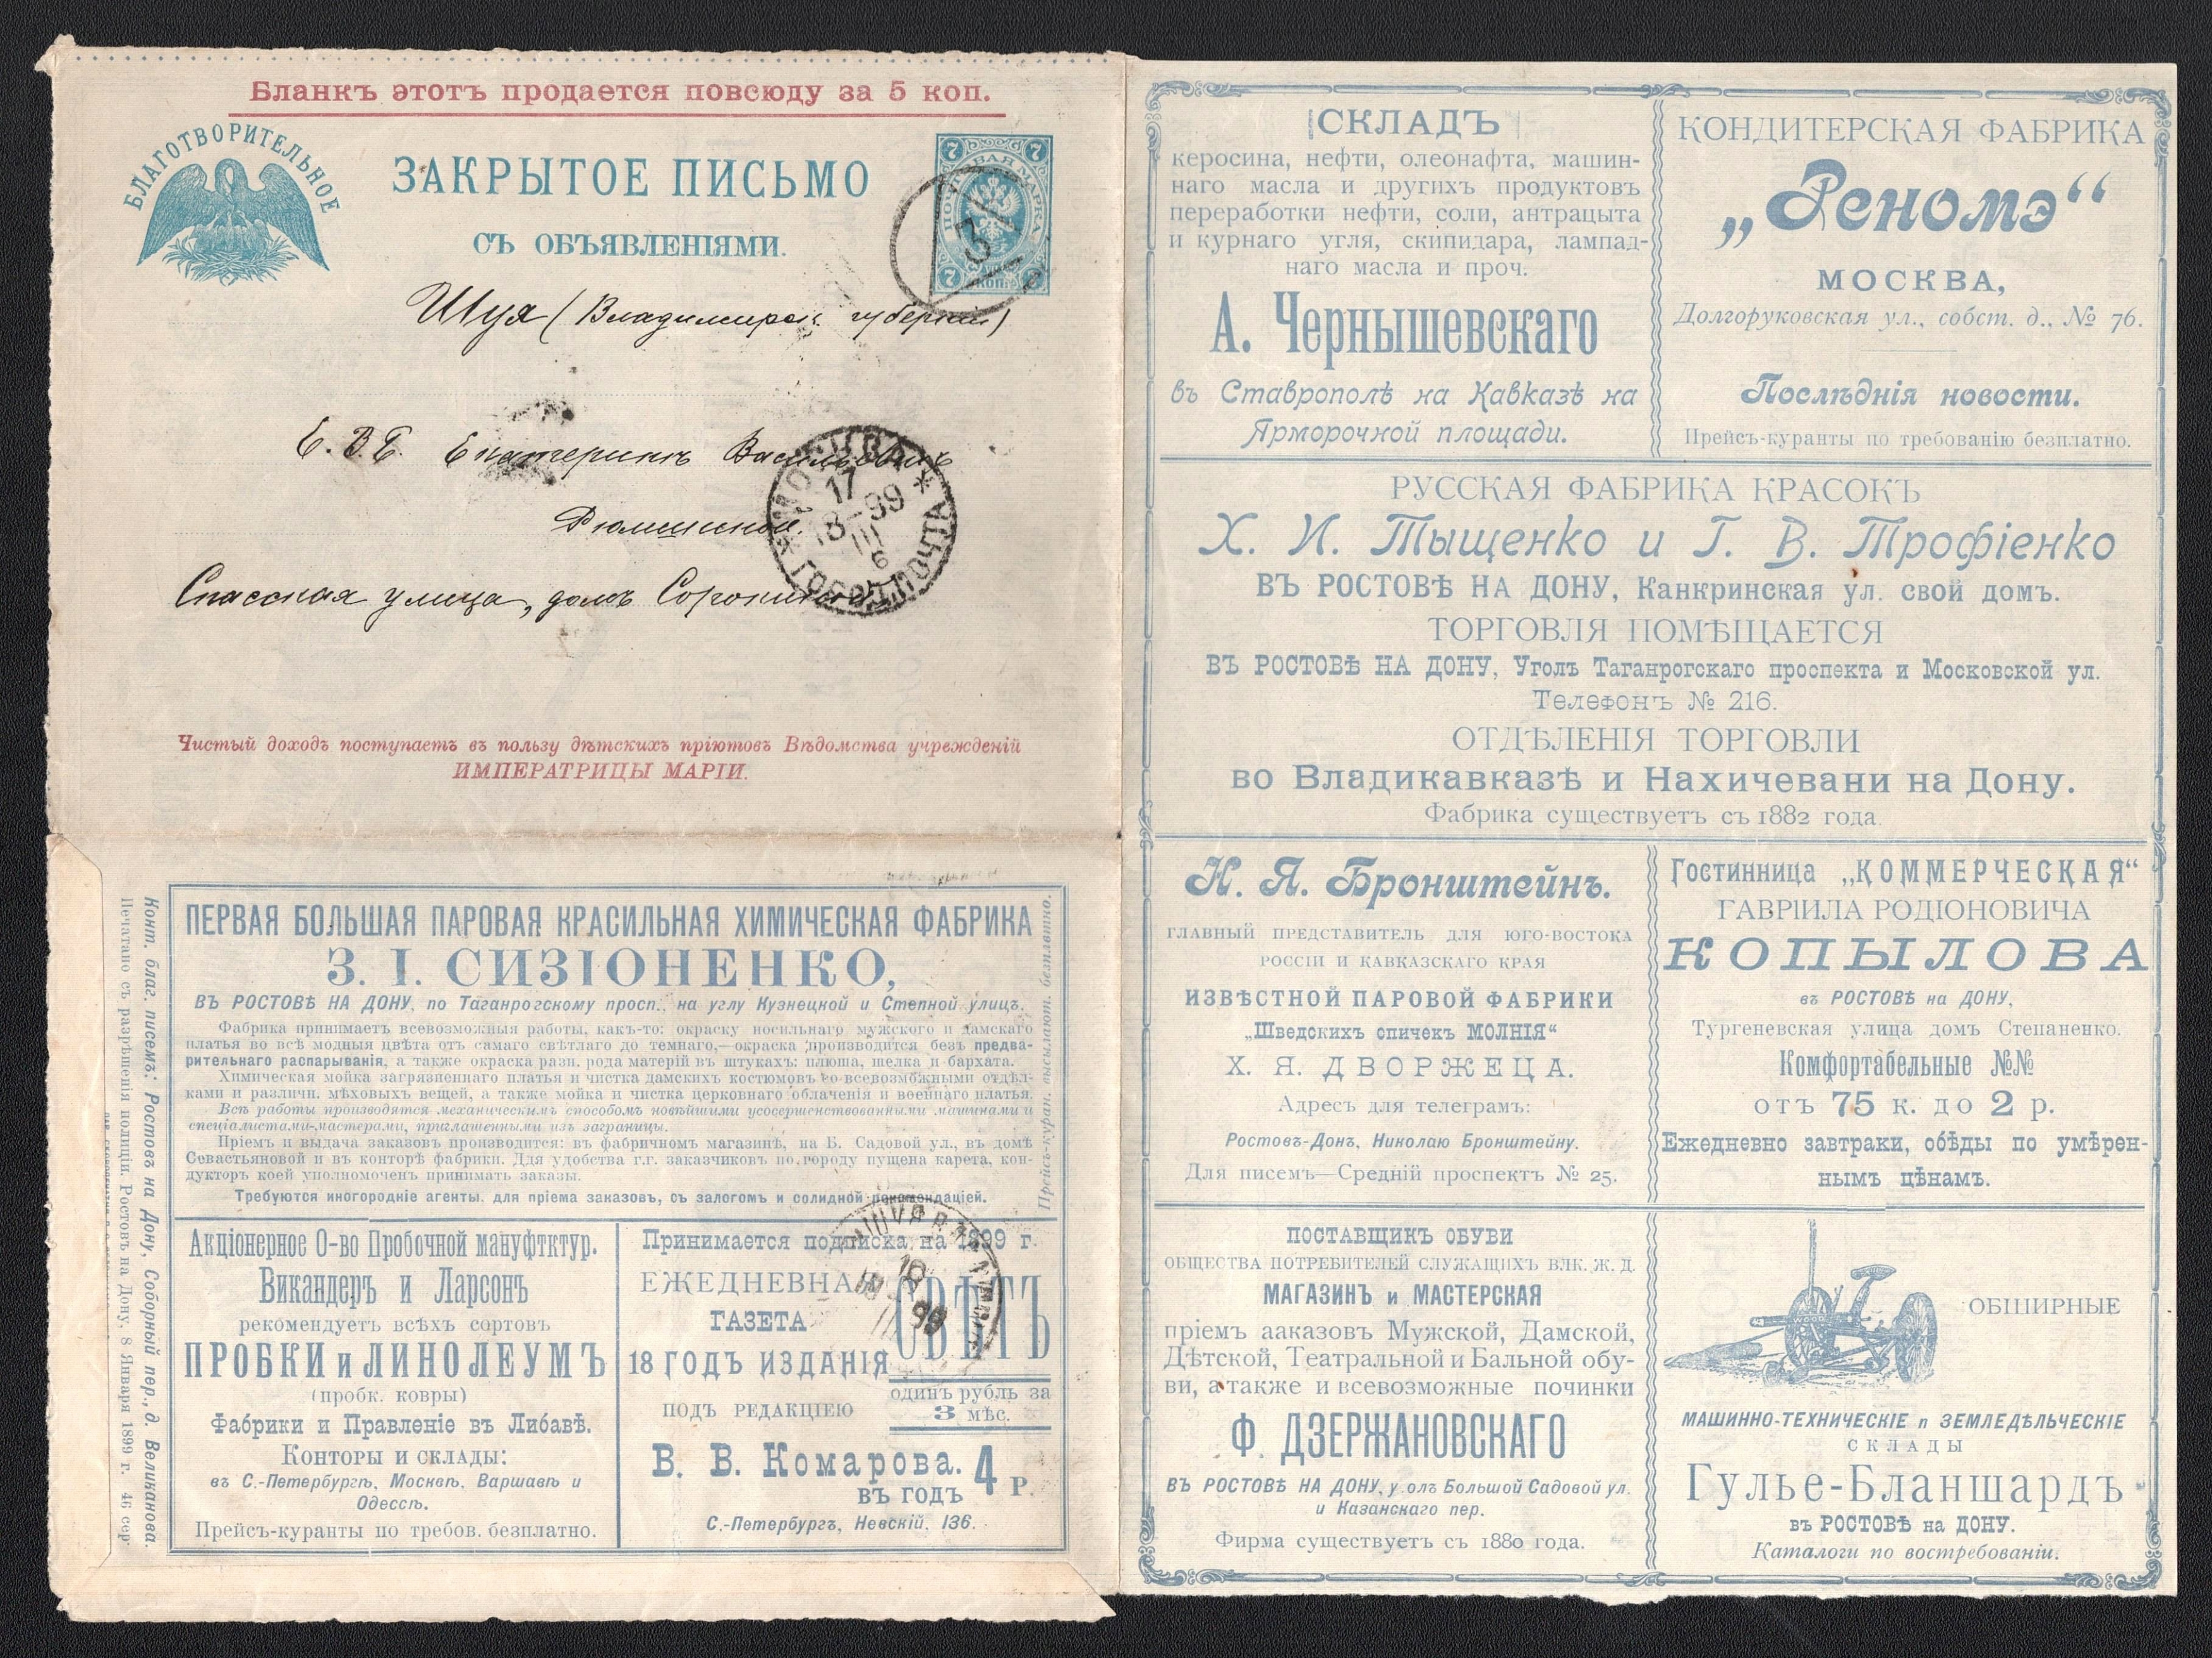 Бланкъ этотъ продается повсюду за 5 коп.
БЛАГОТВОРИТЕЛЬНОЕ
ЗАКРЫТОЕ ПИСЬМО
СЪ ОБЪЯВЛЕНІЯМИ.
7 7
ПОЧТОВАЯ МАРКА
3
7 КОП.
Шуя (Владимирск. губерніи)
Е. В. Б. Екатеринѣ Васильевнѣ
Рюминой.
Спасская улица, домъ Сорокина
МОСКВА
17
18-99
III
6
ГОРОД. ПОЧТА
Чистый доходъ поступаетъ въ пользу дѣтскихъ пріютовъ Вѣдомства учрежденій
ИМПЕРАТРИЦЫ МАРІИ.
Конт. благ. писемъ: Ростовъ на Дону, Соборный пер., д. Великанова.
Печатано съ разрѣшенія полиціи. Ростовъ на Дону. 8 Января 1899 г. 46 сер
ПЕРВАЯ БОЛЬШАЯ ПАРОВАЯ КРАСИЛЬНАЯ ХИМИЧЕСКАЯ ФАБРИКА
З. І. СИЗІОНЕНКО,
ВЪ РОСТОВѢ НА ДОНУ, по Таганрогскому просп., на углу Кузнецкой и Степной улицъ.
Фабрика принимаетъ всевозможныя работы, какъ-то: окраску носильнаго мужского и дамскаго
платья во всѣ модныя цвѣта отъ самаго свѣтлаго до темнаго,—окраска производится безъ предва-
рительнаго распарыванія, а также окраска разн. рода матерій въ штукахъ: плюша, шелка и бархата.
Химическая мойка загрязненнаго платья и чистка дамскихъ костюмовъ со всевозможными отдѣл-
ками и различн. мѣховыхъ вещей, а также мойка и чистка церковнаго облаченія и военнаго платья.
Всѣ работы производятся механическимъ способомъ новѣйшими усовершенствованными машинами и
спеціалистами-мастерами, приглашенными изъ заграницы.
Пріемъ и выдача заказовъ производится: въ фабричномъ магазинѣ, на Б. Садовой ул., въ домѣ
Севастьяновой и въ конторѣ фабрики. Для удобства г.г. заказчиковъ по городу пущена карета, кон-
дукторъ коей уполномоченъ принимать заказы.
Требуются иногородніе агенты для пріема заказовъ, съ залогомъ и солидной рекомендаціей.
Прейсъ-куран. высылают. безплатно.
Акціонерное О-во Пробочной мануфтктур.
Викандеръ и Ларсонъ
рекомендуетъ всѣхъ сортовъ
ПРОБКИ и ЛИНОЛЕУМЪ
(пробк. ковры)
Фабрики и Правленіе въ Либавѣ.
Конторы и склады:
въ С.-Петербургѣ, Москвѣ, Варшавѣ и
Одессѣ.
Прейсъ-куранты по требов. безплатно.
Принимается подписка на 1899 г.
ЕЖЕДНЕВНАЯ
ГАЗЕТА
СВѢТЪ
18 ГОДЪ ИЗДАНІЯ
один рубль за
3 мѣс.
ПОДЪ РЕДАКЦІЕЮ
В. В. Комарова.
въ годъ 4 Р.
С.-Петербургъ, Невскій, 136.
СКЛАДЪ
керосина, нефти, олеонафта, машин-
наго масла и другихъ продуктовъ
переработки нефти, соли, антрацыта
и курнаго угля, скипидара, лампад-
наго масла и проч.
А. Чернышевскаго
въ Ставрополѣ на Кавказѣ на
Ярморочной площади.
КОНДИТЕРСКАЯ ФАБРИКА
„Реномэ“
МОСКВА,
Долгоруковская ул., собст. д., № 76.
Послѣднія новости.
Прейсъ-куранты по требованію безплатно.
РУССКАЯ ФАБРИКА КРАСОКЪ
Х. И. Тыщенко и Г. В. Трофіенко
ВЪ РОСТОВѢ НА ДОНУ, Канкринская ул. свой домъ.
ТОРГОВЛЯ ПОМѢЩАЕТСЯ
ВЪ РОСТОВѢ НА ДОНУ, Уголъ Таганрогскаго проспекта и Московской ул.
Телефонъ № 216.
ОТДѢЛЕНІЯ ТОРГОВЛИ
во Владикавказѣ и Нахичевани на Дону.
Фабрика существуетъ съ 1882 года.
Н. Я. Бронштейнъ.
ГЛАВНЫЙ ПРЕДСТАВИТЕЛЬ ДЛЯ ЮГО-ВОСТОКА
РОССІИ И КАВКАЗСКАГО КРАЯ
ИЗВѢСТНОЙ ПАРОВОЙ ФАБРИКИ
„Шведскихъ спичекъ МОЛНІЯ“
Х. Я. ДВОРЖЕЦА.
Адресъ для телеграмъ:
Ростовъ-Донъ, Николаю Бронштейну.
Для писемъ—Средній проспектъ № 25.
Гостинница „КОММЕРЧЕСКАЯ“
ГАВРІИЛА РОДІОНОВИЧА
КОПЫЛОВА
въ РОСТОВѢ на ДОНУ,
Тургеневская улица домъ Степаненко.
Комфортабельные №№
отъ 75 к. до 2 р.
Ежедневно завтраки, обѣды по умѣрен-
нымъ цѣнамъ.
ПОСТАВЩИКЪ ОБУВИ
ОБЩЕСТВА ПОТРЕБИТЕЛЕЙ СЛУЖАЩИХЪ ВЛК. Ж. Д.
МАГАЗИНЪ и МАСТЕРСКАЯ
пріемъ ааказовъ Мужской, Дамской,
Дѣтской, Театральной и Бальной обу-
ви, а также и всевозможные починки
Ф. ДЗЕРЖАНОВСКАГО
ВЪ РОСТОВѢ НА ДОНУ, у олъ Большой Садовой ул.
и Казанскаго пер.
Фирма существуетъ съ 1880 года.
WOOD
ОБШИРНЫЕ
МАШИННО-ТЕХНИЧЕСКІЕ п ЗЕМЛЕДѢЛЬЧЕСКІЕ
СКЛАДЫ
Гулье-Бланшардъ
въ РОСТОВѢ на ДОНУ.
Каталоги по востребованіи.